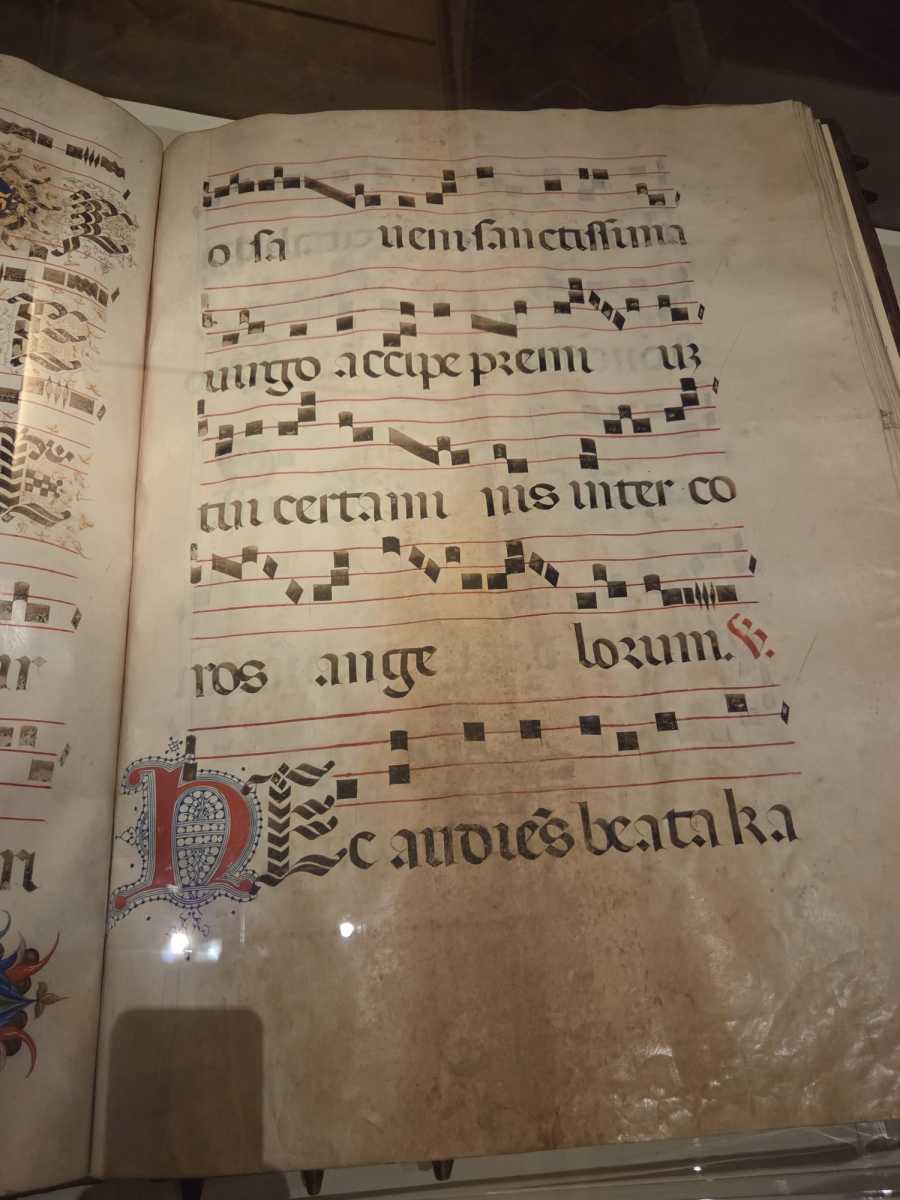 o sa ueni·sanctissima
uirgo accipe premi uꝫ
tui certami nis inter co
ros ange lorum. ℣.
hEc audiẽs beata ka